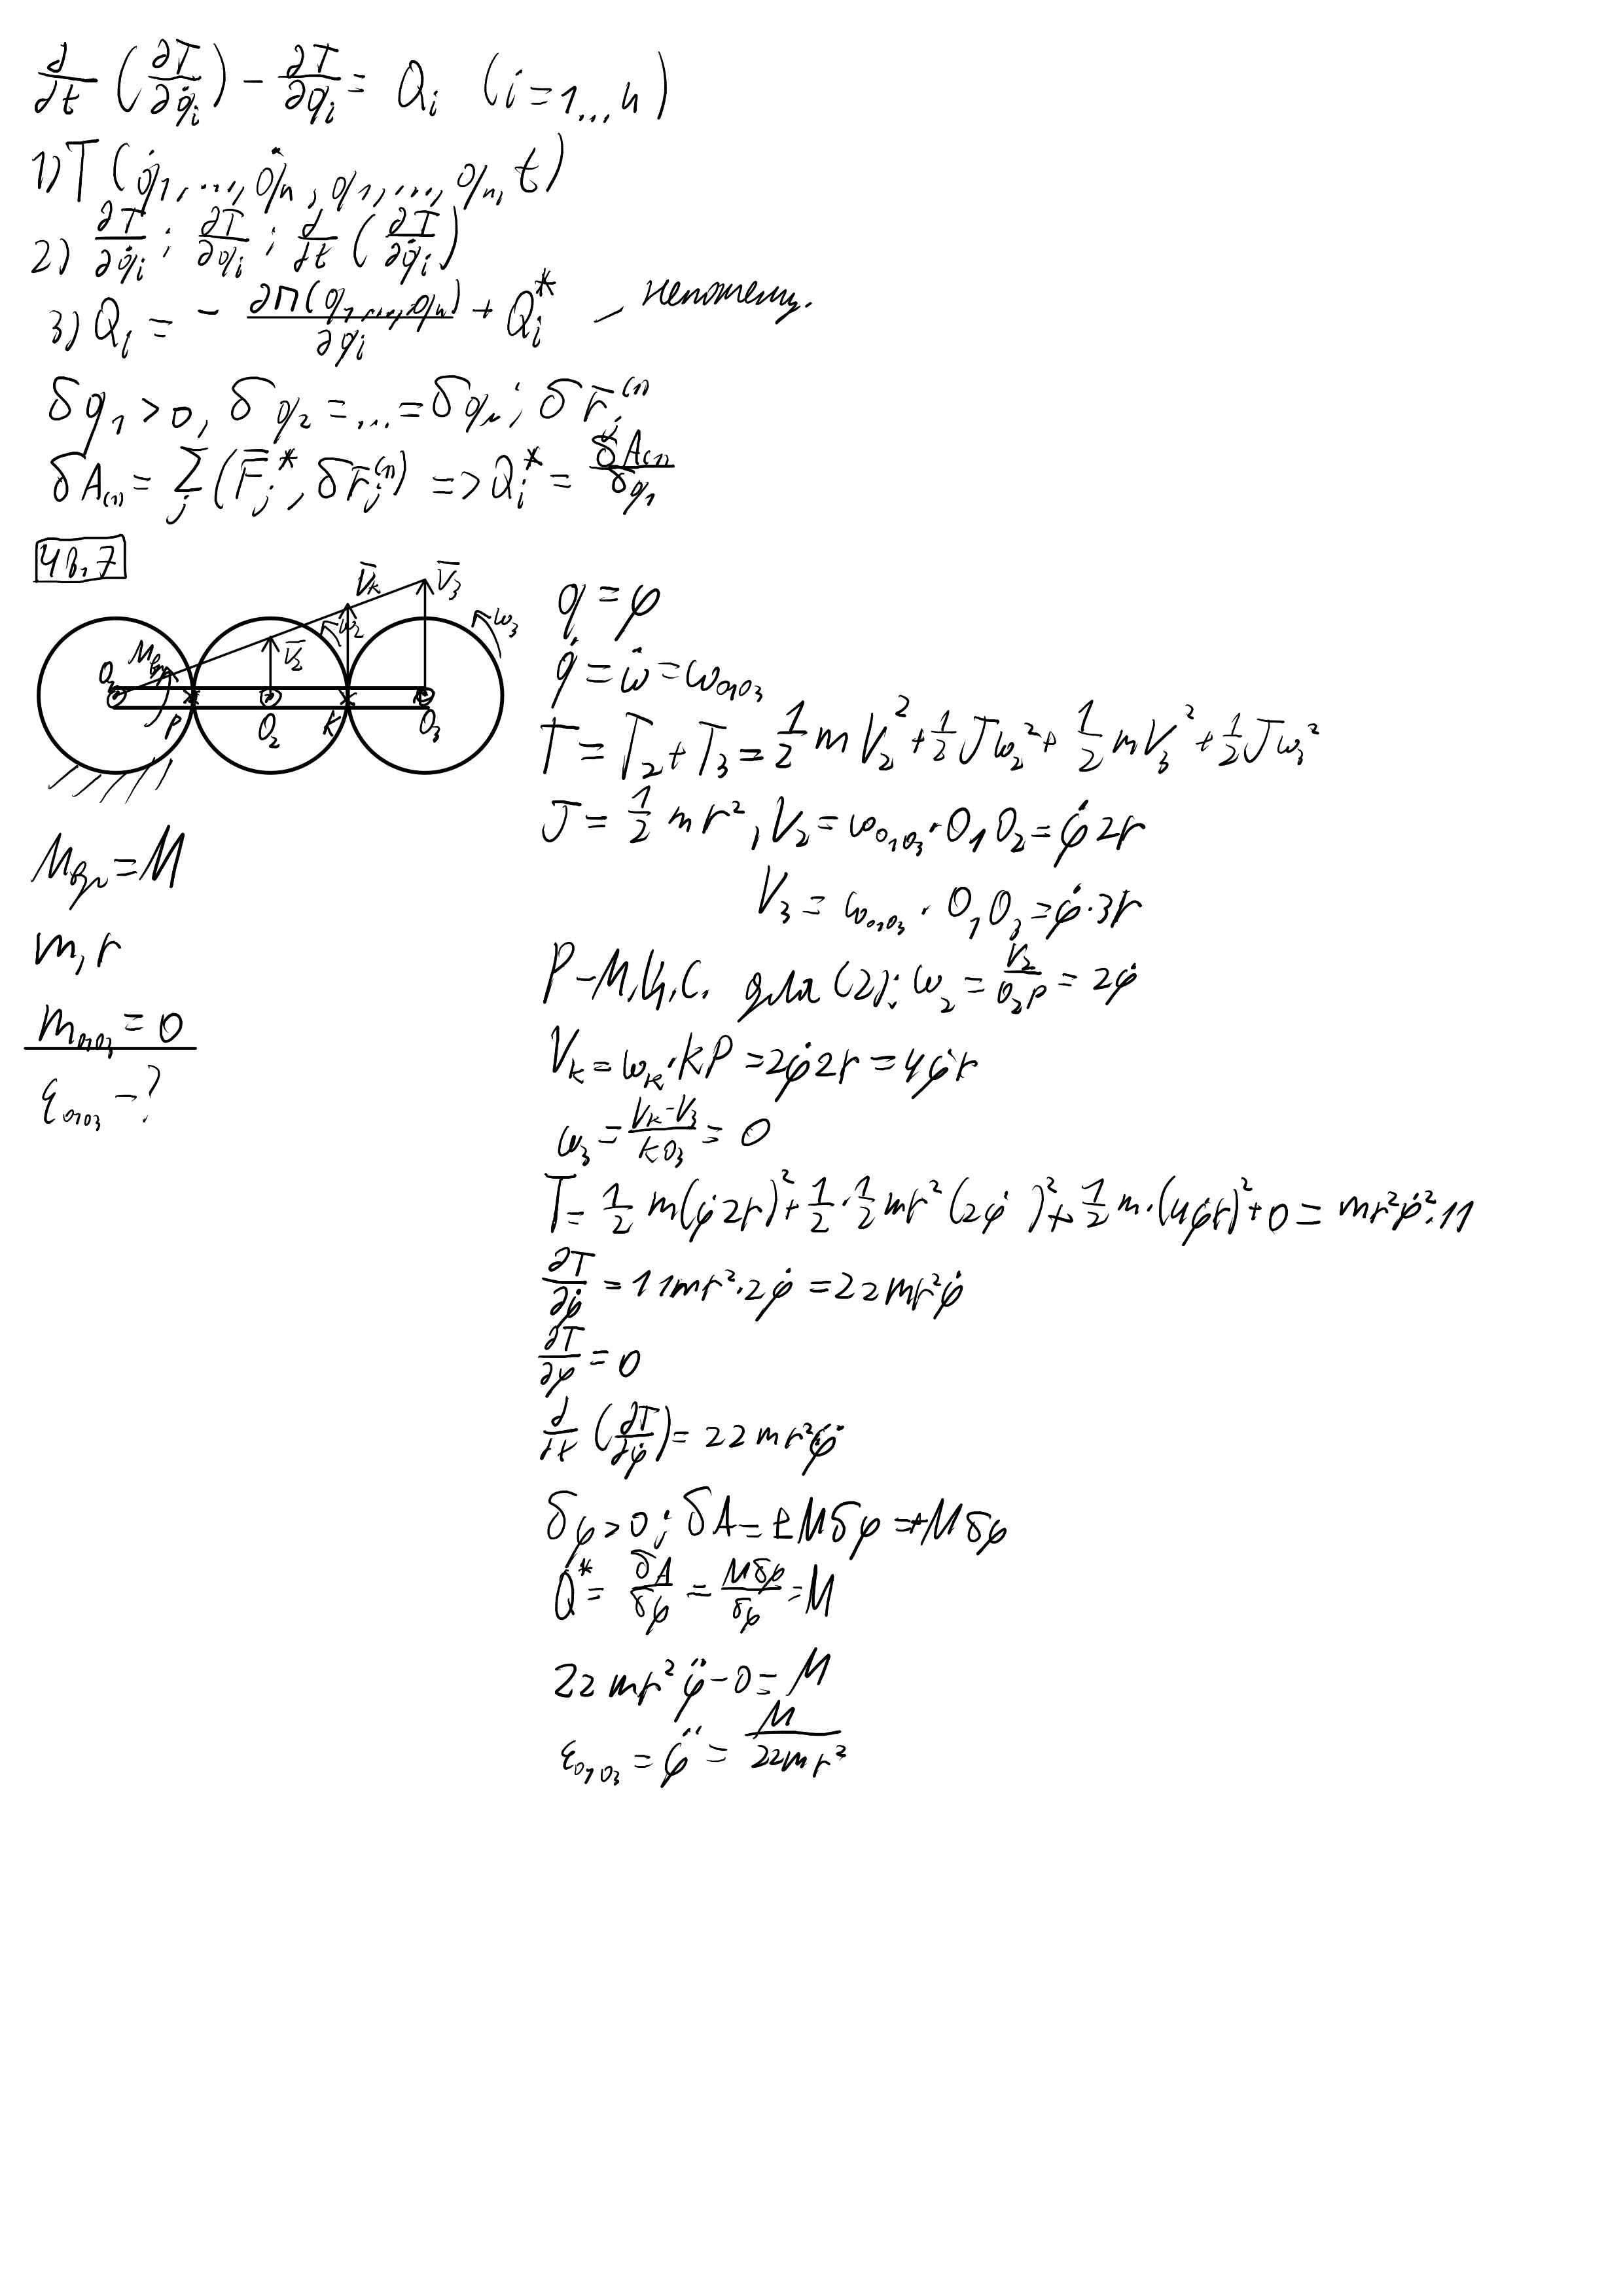 d/dt (∂T/∂q̇i) - ∂T/∂qi = Qi (i=1...n)
1) T (q̇1, ..., q̇n, q1, ..., qn, t)
2) ∂T/∂q̇i ; ∂T/∂qi ; d/dt (∂T/∂q̇i)
3) Qi = - ∂П(q1, ..., qn)/∂qi + Qi*
δq1 > 0, δq2 = ... = δqn ; δr̄j⁽¹⁾
δA(1) = Σj (F̄j*, δr̄j⁽¹⁾) => Qi* = δA(1)/δq1
48.7
V̄k V̄3
ω2 ω3
Mвр V̄2
O1 P O2 K O3
Mвр = M
m, r
mO1O3 = 0
εO1O3 - ?
q = φ
q̇ = ω̇ = ωO1O3
T = T2 + T3 = 1/2 m V2² + 1/2 Jω2² + 1/2 mV3² + 1/2 Jω3²
J = 1/2 mr², V2 = ωO1O3 · O1O2 = φ̇ 2r
V3 = ωO1O3 · O1O3 = φ̇ · 3r
P - М.Ц.С. для (2): ω2 = V2/O2P = 2φ̇
Vk = ωk · KP = 2φ̇ 2r = 4φ̇r
ω3 = (Vk - V3)/KO3 = 0
T = 1/2 m(φ̇ 2r)² + 1/2 · 1/2 mr² (2φ̇)² + 1/2 m · (4φ̇r)² + 0 = mr²φ̇² · 11
∂T/∂φ̇ = 11mr² · 2φ̇ = 22mr²φ̇
∂T/∂φ = 0
d/dt (∂T/∂φ̇) = 22mr²φ̈
δφ > 0 ; δA = ±Mδφ = +Mδφ
Q* = δA/δφ = Mδφ/δφ = M
22mr²φ̈ - 0 = M
εO1O3 = φ̈ = M/22mr²